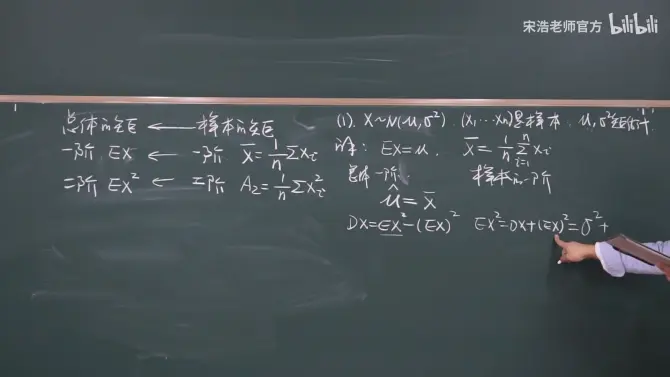 宋浩老师官方 bilibili
总体的矩 ← 样本的矩
一阶 EX ← 一阶 X̄=1/n ΣXᵢ
二阶 EX² ← 二阶 A₂=1/n ΣXᵢ²
(1). X~N(μ,σ²). (X₁…Xₙ)是样本. μ,σ²矩估计
解: EX=μ. X̄=1/n Σᵢ₌₁ⁿ Xᵢ
总体一阶. 样本的一阶
μ̂=X̄
DX=EX²-(EX)² EX²=DX+(EX)²=σ²+